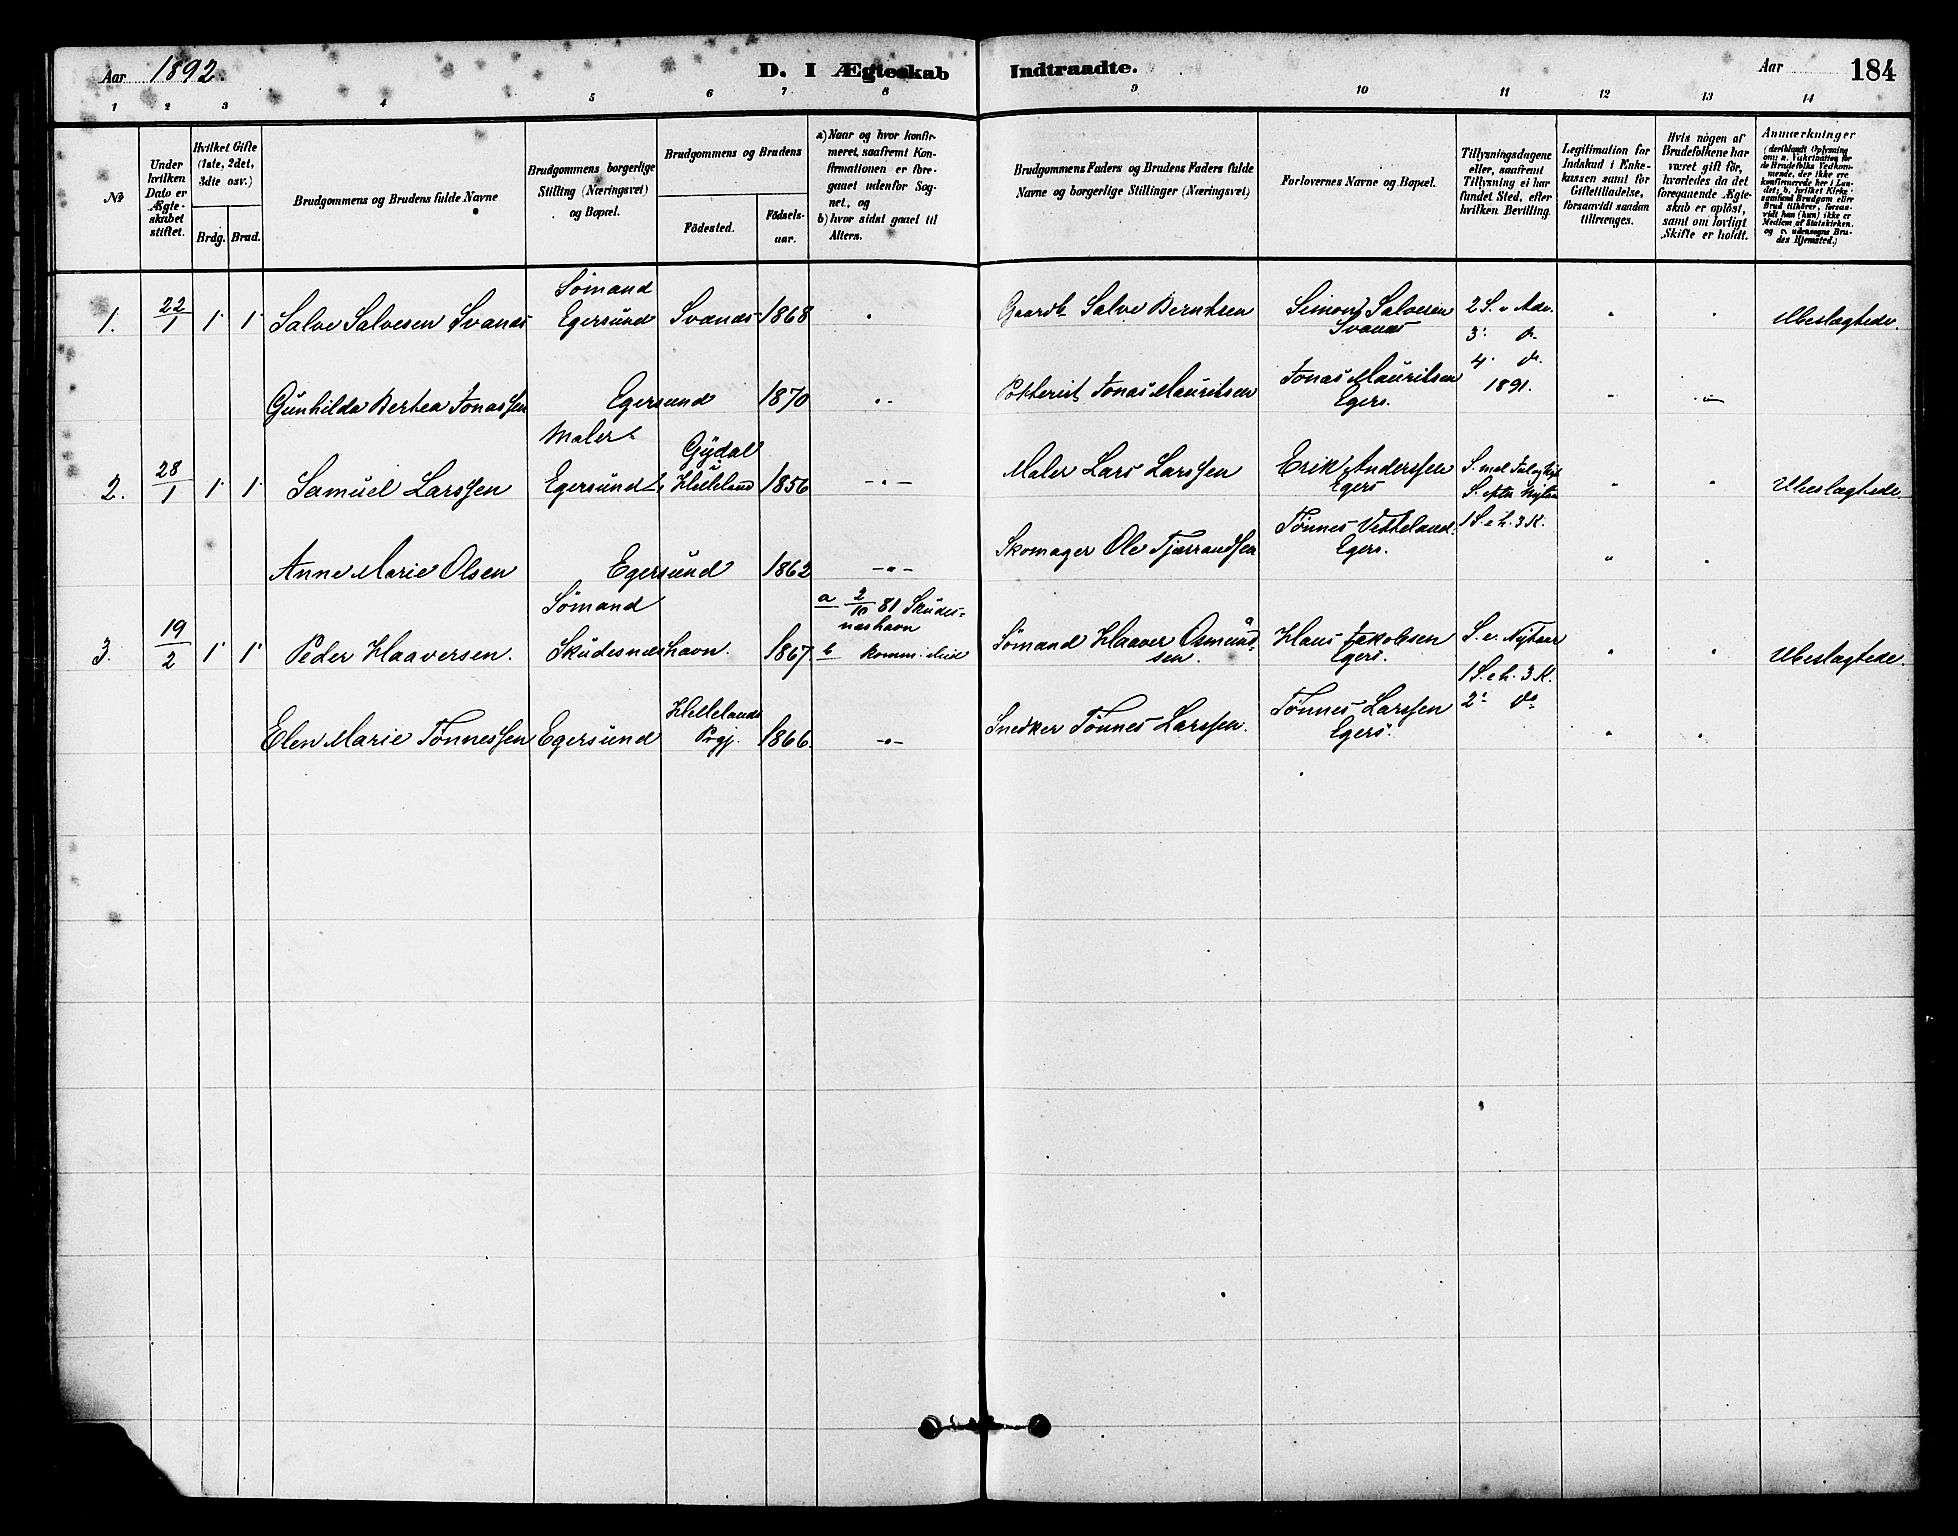 Aar 1892
D. I Ægteskab Indtraadte.
Aar 184
1 2 3 4 5 6 7 8 9 10 11 12 13 14
No
Under hvilken Dato er Ægteskabet stiftet.
Hvilket Gifte (1ste, 2det, 3dte osv.)
Brdg. Brud.
Brudgommens og Brudens fulde Navne
Brudgommens borgerlige Stilling (Næringsvei) og Bopæl.
Brudgommens og Brudens
Födested. Födselsaar.
a) Naar og hvor konfirmeret, saafremt Konfirmationen er foregaaet udenfor Sognet, og
b) hvor sidst gaaet til Alters.
Brudgommens Faders og Brudens Faders fulde Navne og borgerlige Stillinger (Næringsvei)
Forlovernes Navne og Bopæl.
Tillysningsdagene eller, saafremt Tillysning ei har fundet Sted, efter hvilken Bevilling.
Legitimation for Indskud i Enkekassen samt for Giftetilladelse, forsaavidt saadan tiltrænges.
Hvis nogen af Brudefolkene har været gift för, hvorledes da det foregaaende Ægteskab er oplöst, samt om lovligt Skifte er holdt.
Anmærkninger
(deriblandt Oplysning om: a. Vakcination for de Brudefolks Vedkommende, der ikke ere konfirmerede her i Landet; b. hvilket Kirkesamfund Brudgom eller Brud tilhörer, forsaavidt han (hun) ikke er Medlem af Statskirken, og c. udensogns Brudes Hjemsted.)
1. 22/1 1 1 Salve Salvesen Svanæs Sømand Egersund Svanæs 1868 " Gaardb. Salve Berntsen Simon Salvesen Svanæs 2 S. i Adv. " " Ubeslægtede.
3. do.
4. do.
1891.
Gunhilda Bertea Jonassen Egersund 1870 " Potterist Jonas Mauritsen Jonas Mauritsen Egers. " "
2. 28/1 1 1 Samuel Larssen Maler Egersund Gydal i Helleland 1856 -"- Maler Lars Larssen Erik Anderssen Egers S. mel Jul og Nyt. S. efter Nytaar " " Ubeslægtede.
1 S. e. h. 3 K.
Anne Marie Olsen Egersund 1862 -"- Skomager Ole Tjærrandsen Tønnes Vetteland Egers. " "
3. 19/2 1 1 Peder Haaversen. Sømand Skudesnæshavn. 1867. a 2/10 81 Skudesnæshavn b Sømand Haaver Osmundsen. Hans Jakobsen Egers. S. e. Nytaar " " Ubeslægtede.
1 S. e. h. 3 K.
2. do.
Elen Marie Tønnessen Egersund Hellelands Prgj. 1866. -"- Snedker Tønnes Larssen. Tønnes Larssen Egers. " "